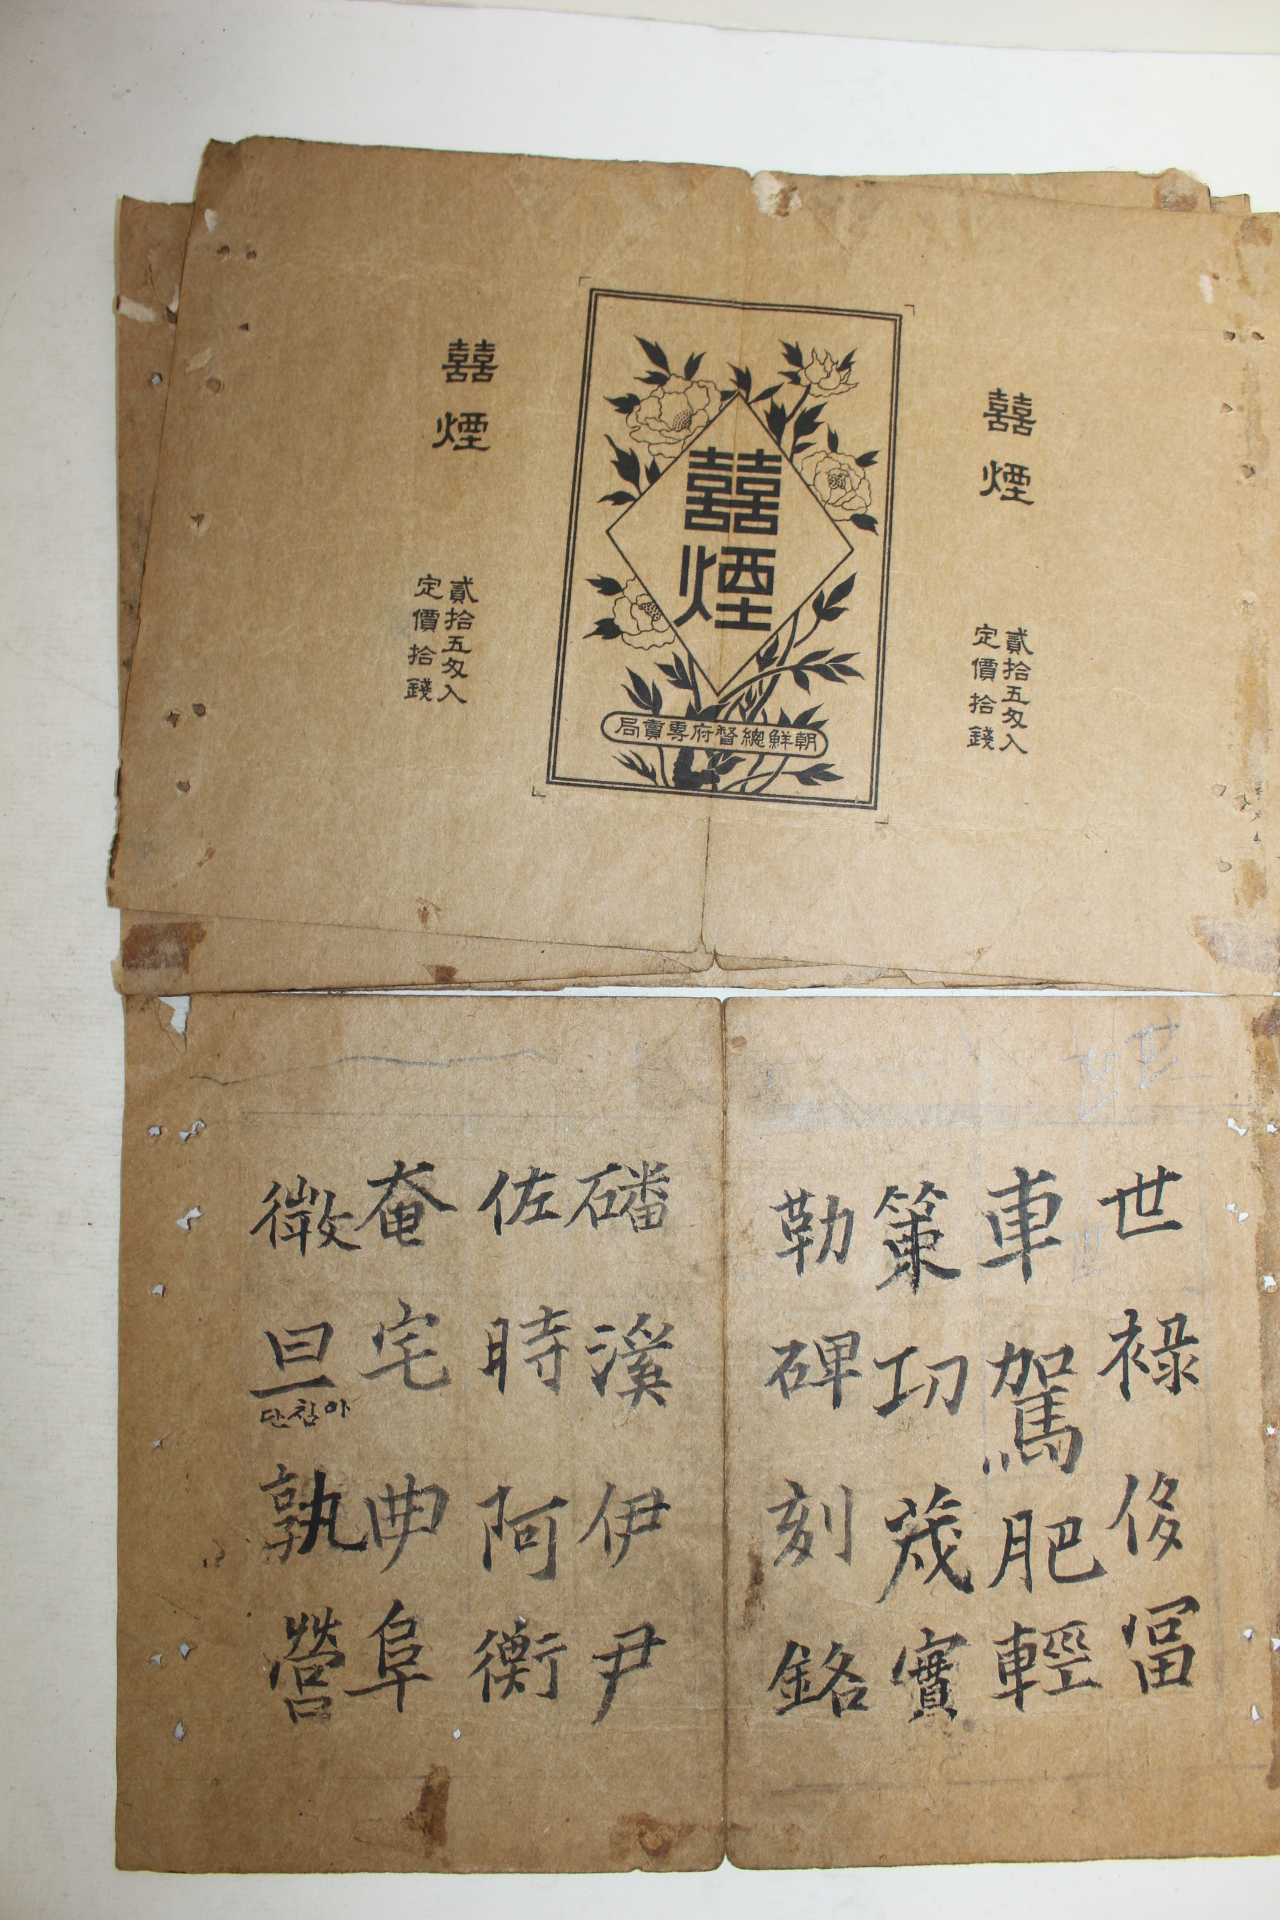 囍煙
貳拾五匁入
定價拾錢
囍煙
朝鮮總督府專賣局
囍煙
貳拾五匁入
定價拾錢
世祿侈冨
車駕肥輕
策功茂實
勒碑刻銘
磻溪伊尹
佐時阿衡
奄宅曲阜
微旦孰營
단참아